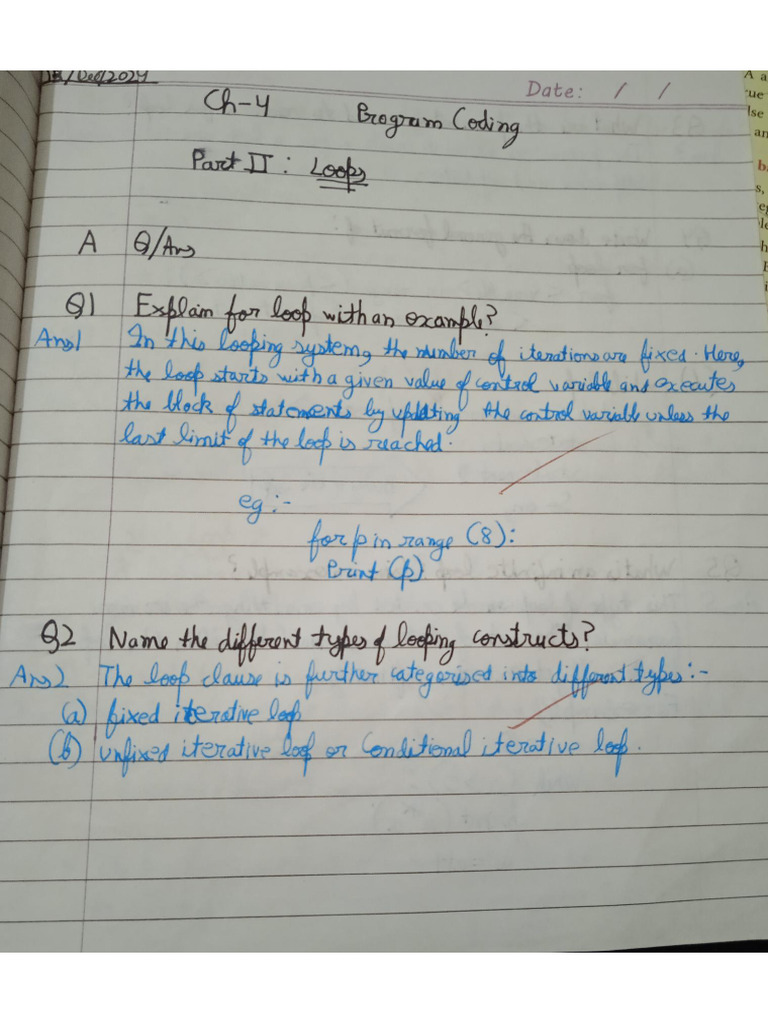 /Dec/2024
Date: / /
Ch-4 Program Coding
Part II : Loops
A Q/Ans
Q1 Explain for loop with an example?
Ans1 In this looping system, the number of iterations are fixed. Here,
the loop starts with a given value of control variable and executes
the block of statements by updating the control variable unless the
last limit of the loop is reached.
eg :-
for p in range (8):
Print (p)
Q2 Name the different types of looping constructs?
Ans2 The loop clause is further categorised into different types:-
(a) fixed iterative loop
(b) unfixed iterative loop or Conditional iterative loop.